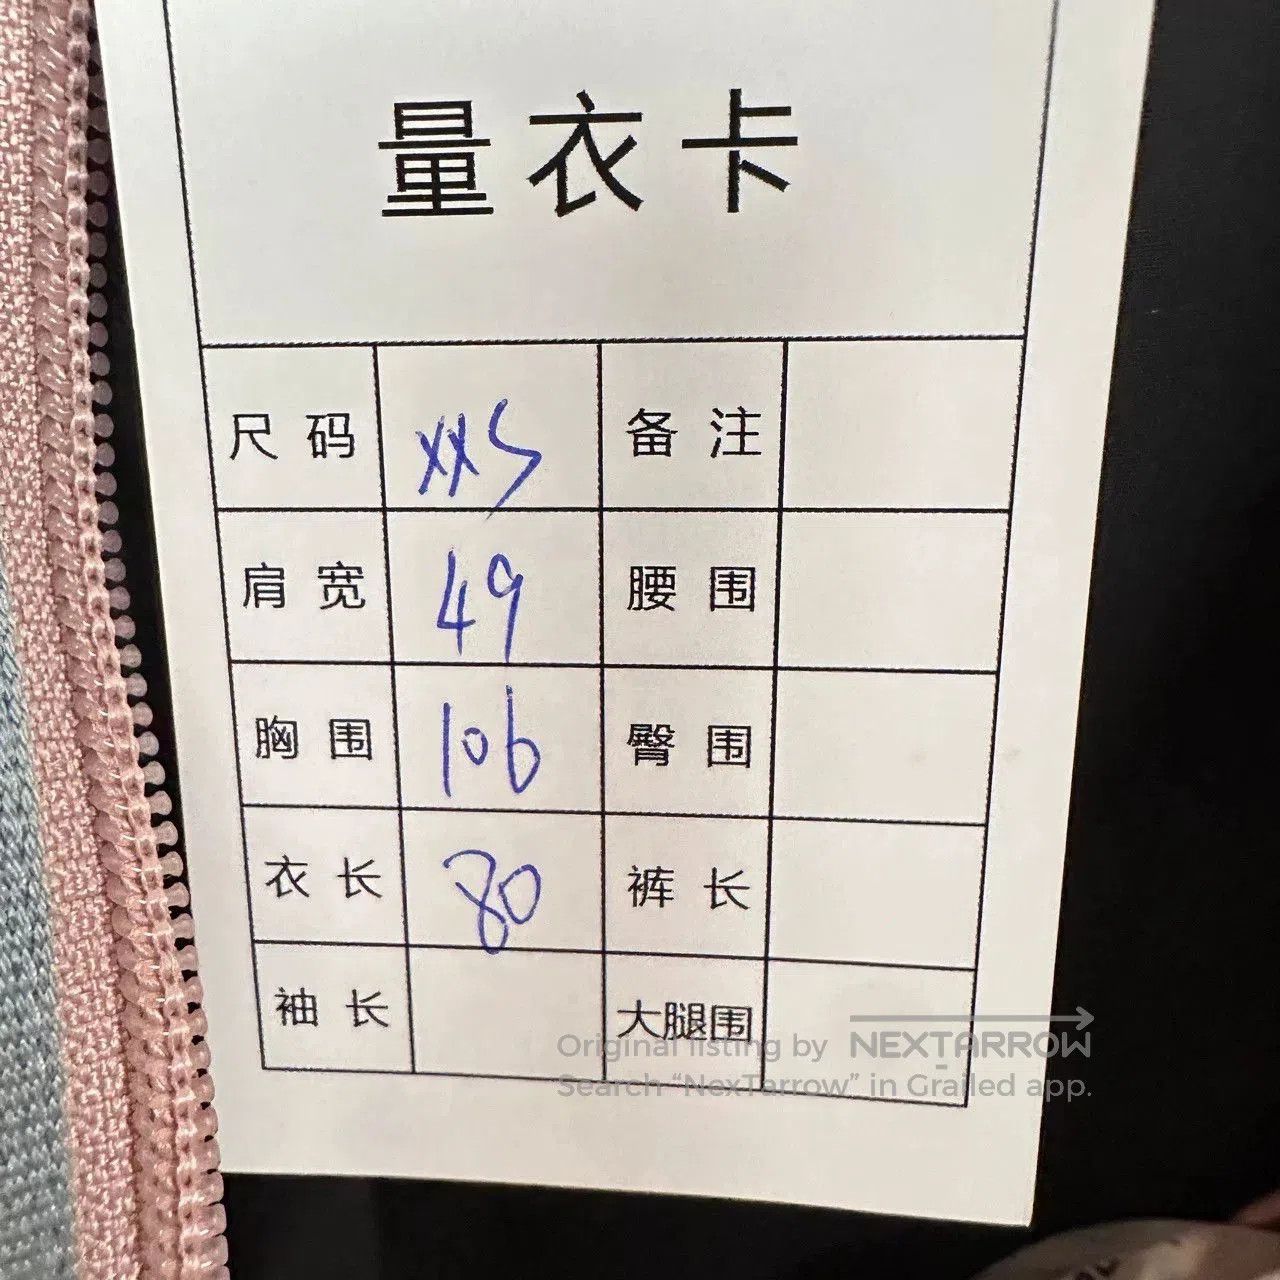 量衣卡
尺码 XXS 备注
肩宽 49 腰围
胸围 106 臀围
衣长 80 裤长
袖长 大腿围
Original listing by NEXTARROW
Search “NexTarrow” in Grailed app.